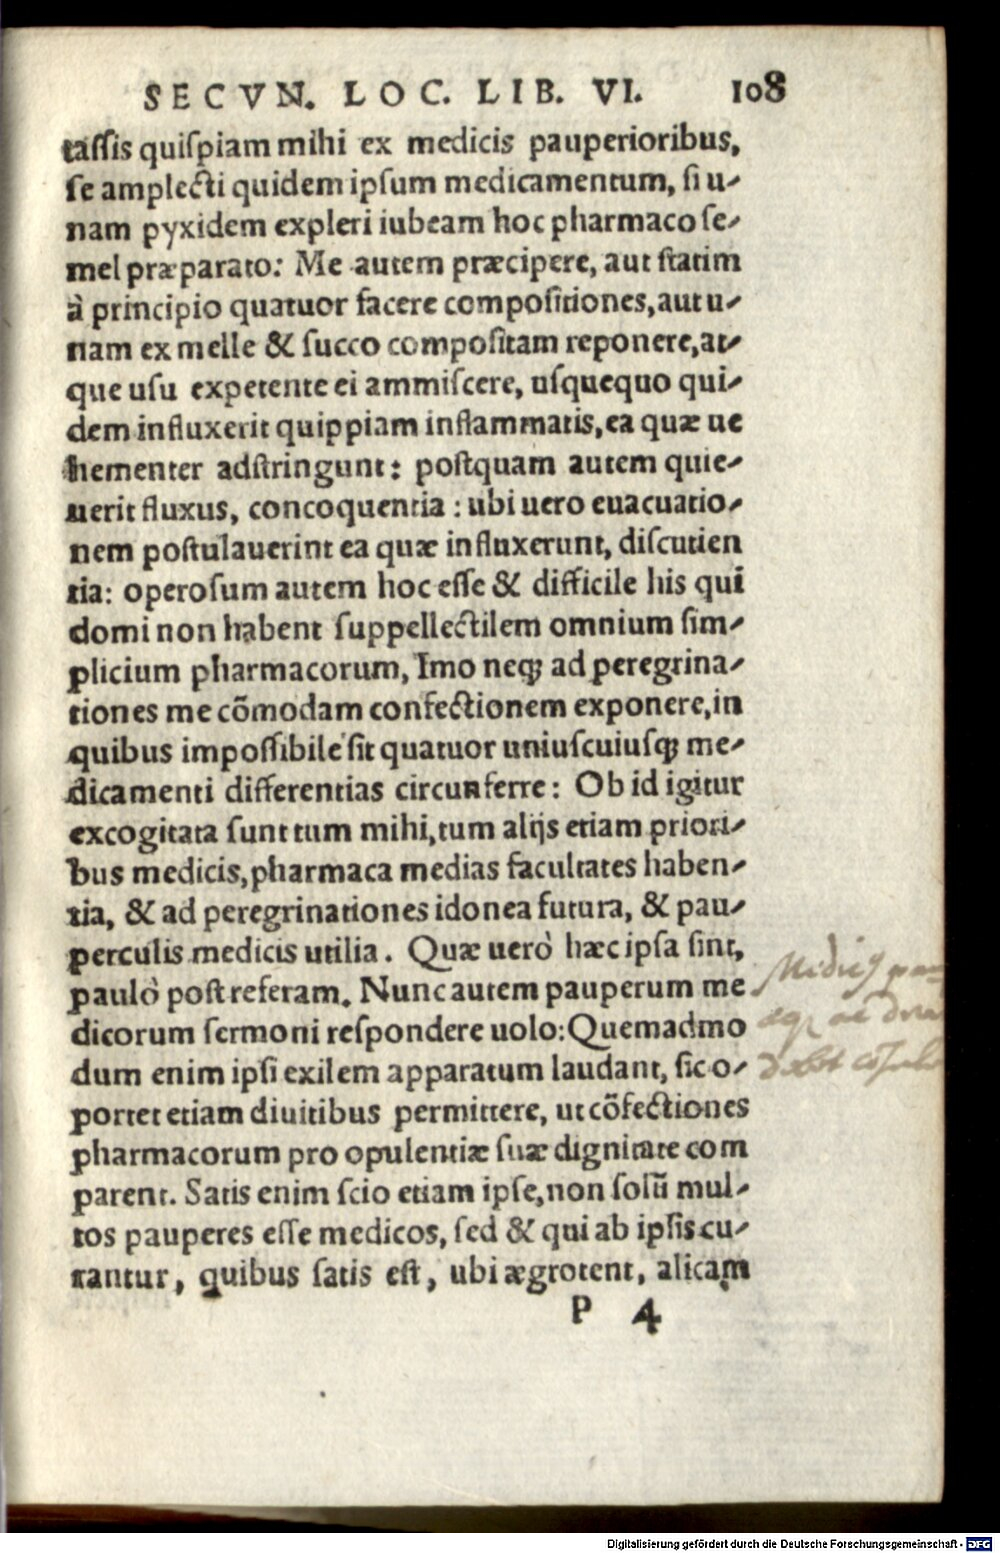 SECVN. LOC. LIB. VI. 108
tassis quiſpiam mihi ex medicis pauperioribus,
ſe amplecti quidem ipſum medicamentum, ſi u-
nam pyxidem expleri iubeam hoc pharmaco ſe-
mel præparato: Me autem præcipere, aut ſtatim
à principio quatuor facere compoſitiones, aut u-
nam ex melle & ſucco compoſitam reponere, at-
que uſu expetente ei ammiſcere, uſquequo qui-
dem influxerit quippiam inflammatis, ea quæ ue
hementer adſtringunt: poſtquam autem quie-
uerit fluxus, concoquentia : ubi uero euacuatio-
nem poſtulauerint ea quæ influxerunt, diſcutien
tia: operoſum autem hoc eſſe & difficile his qui
domi non habent ſuppellectilem omnium ſim-
plicium pharmacorum, Imo neq; ad peregrina-
tiones me cõmodam confectionem exponere, in
quibus impoſſibile ſit quatuor uniuſcuiuſq; me-
dicamenti differentias circunferre: Ob id igitur
excogitata ſunt tum mihi, tum alijs etiam priori-
bus medicis, pharmaca medias facultates haben-
tia, & ad peregrinationes idonea futura, & pau-
perculis medicis utilia. Quæ uerò hæc ipſa ſint,
paulò poſt referam. Nunc autem pauperum me
dicorum ſermoni reſpondere uolo: Quemadmo
dum enim ipſi exilem apparatum laudant, ſic o-
portet etiam diuitibus permittere, ut cõfectiones
pharmacorum pro opulentiæ ſuæ dignitate com
parent. Satis enim ſcio etiam ipſe, non ſolũ mul-
tos pauperes eſſe medicos, ſed & qui ab ipſis cu-
rantur, quibus ſatis eſt, ubi ægrotent, alicam
P 4
Digitalisierung gefördert durch die Deutsche Forschungsgemeinschaft - DFG